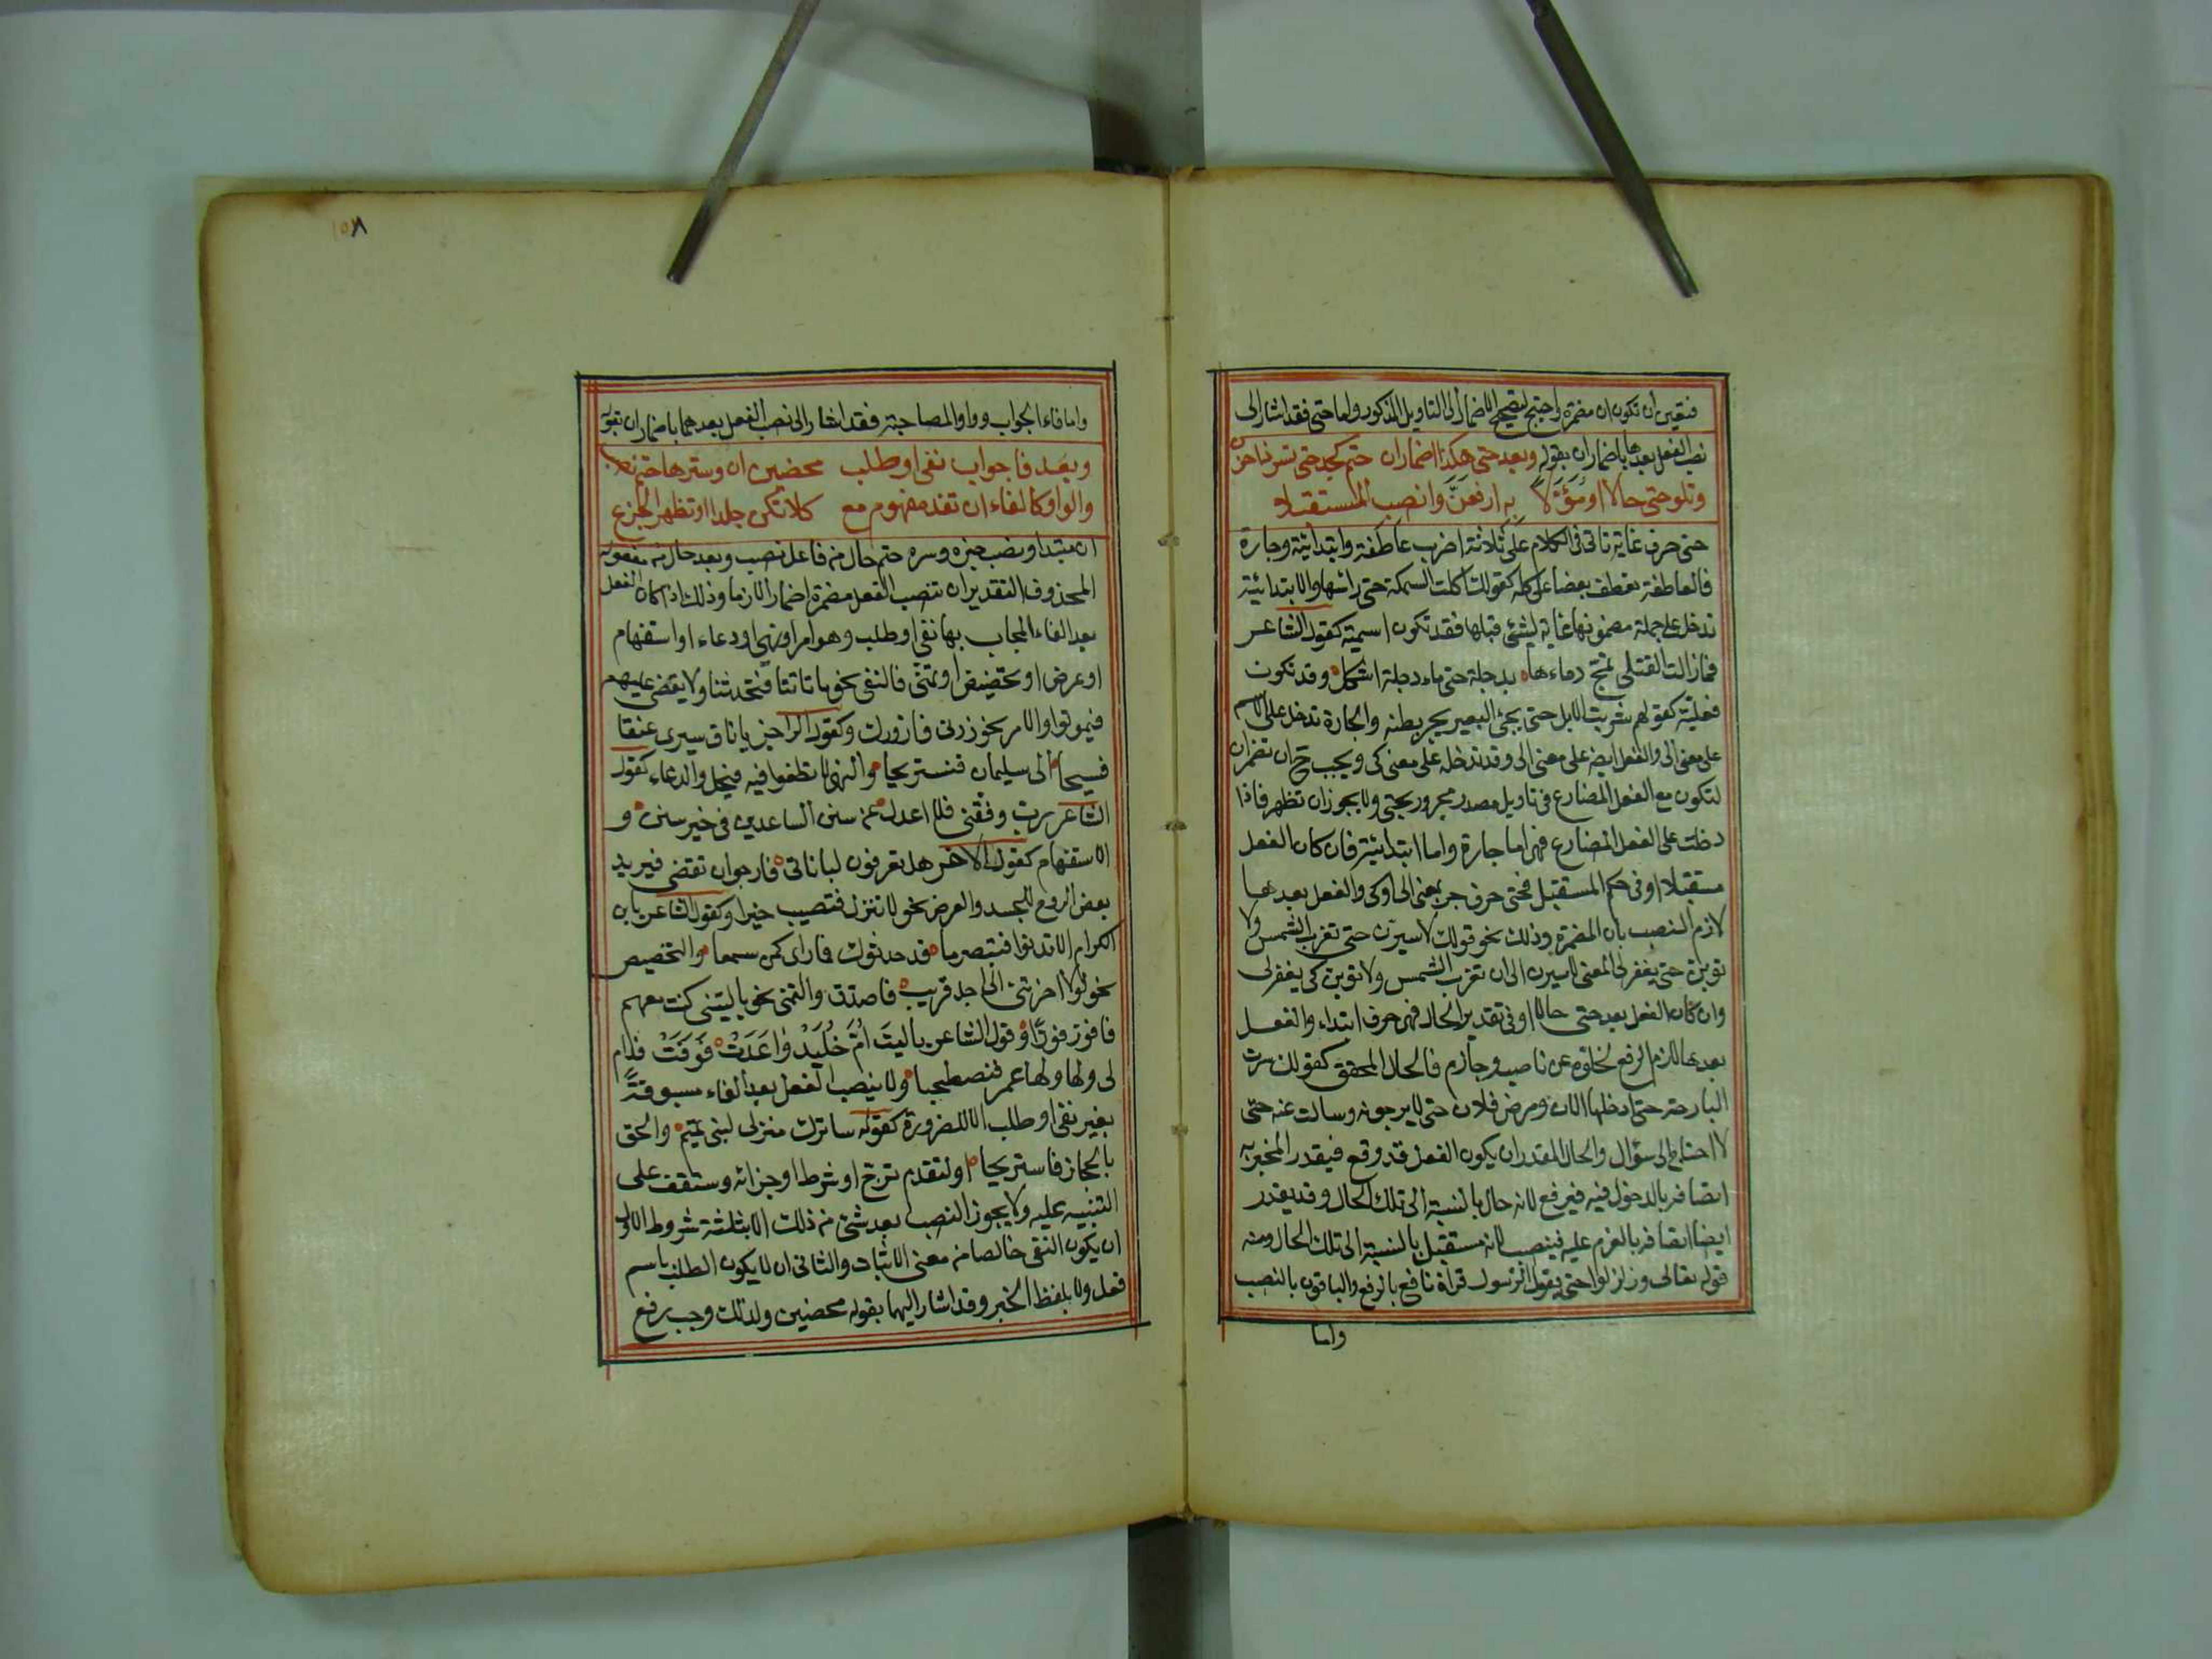 فتعين ان تكون ان مضمرة واحتيج لتصحيح الاضمار الى التاويل المذكور واما حتى فقد اشار الى
نصب الفعل بعدها باضمار ان بقوله وبعد حتى هكذا اضمار ان حتم كجد حتى تسر ذا حزن
وتلو حتى حالا او مُؤَوَّلاً به ارفعَنَّ وانصب المستقبلا
حتى حرف غاية تاتى فى الكلام على ثلاثة اضرب عاطفة وابتدائية وجارة
فالعاطفة تعطف بعضا على كله كقولك اكلت السمكة حتى راسها والابتدائية
تدخل على جملة مضمونها غاية لشئ قبلها فقد تكون اسمية كقول الشاعر
فمازالت القتلى تمج دماءها بدجلة حتى ماء دجلة اشكل وقد تكون
فعلية كقولهم شربت الابل حتى يجئ البعير يجر بطنه والجارة تدخل على الاسم
على معنى الى والفعل ايضا على معنى الى وقد تدخله على معنى كى ويجب ح ان تضمر ان
لتكون مع الفعل المضارع فى تاويل مصدر مجرور بحتى ولا يجوز ان تظهر فاذا
دخلت على الفعل المضارع فهى اما جارة واما ابتدائية فان كان الفعل
مستقبلا او فى حكم المستقبل فحتى حرف جر بمعنى الى او كى والفعل بعدها
لازم النصب بان المضمرة وذلك نحو قولك لاسيرن حتى تغرب الشمس ولا
توبن حتى يغفر لى المعنى لاسيرن الى ان تغرب الشمس ولاتوبن كى يغفر لى
وان كان الفعل بعد حتى حالا او فى تقدير الحال فهى حرف ابتداء والفعل
بعدها لازم الرفع لخلوه عن ناصب وجازم فالحال المحقق كقولك سرت
البارحة حتى ادخلها الان ومرض فلان حتى لا يرجونه وسالت عنه حتى
لا احتاج الى سؤال والحال المقدر ان يكون الفعل قد وقع فيقدر المخبر به
اتصافه بالدخول فيه فيرفع لانه حال بالنسبة الى تلك الحال وقد يقدر
ايضا اتصافه بالعزم عليه فينصب لانه مستقبل بالنسبة الى تلك الحال ومنه
قوله تعالى وزلزلوا حتى يقول الرسول قراة نافع بالرفع والباقون بالنصب
واما
١٥٨
واما فاء الجواب وواو المصاحبة فقد اشار الى نصب الفعل بعدهما باضمار ان بقوله
وبعد فا جواب نفى او طلب محضين ان وسترها حتم نصب
والواو كالفاء ان تفد مفهوم مع كلا تكن جلدا وتظهر الجزع
ان مبتدا ونصب خبره وستره حتم حال من فاعل نصب وبعد حال من مفعوله
المحذوف التقدير ان تنصب الفعل مضمرة اضمارا لازما وذلك اذا كان الفعل
بعد الفاء المجاب بها نفى او طلب وهو امر او نهى او دعاء او استفهام
او عرض او تحضيض او تمنى فالنفى نحو ما تاتنا فتحدثنا ولا يقضى عليهم
فيموتوا والامر نحو زرنى فازورك وكقول الراجز يا ناق سيرى عنقا
فسيحا الى سليمان فنستريحا والنهى لا تطغوا فيه فيحل والدعاء كقول
الشاعر رب وفقنى فلا اعدل عن سنن الساعين فى خير سنن و
الاستفهام كقول الاخر هل تعرفون لباناتى فارجوان تقضى فيرتد
بعض الروح للجسد والعرض نحو لا تنزل فتصيب خيرا وكقول الشاعر يابن
الكرام الا تدنوا فتبصر ما قد حدثوك فما راء كمن سمعا والتحضيض
نحو لولا اخرتنى الى اجل قريب فاصدق والتمنى نحو ياليتنى كنت معهم
فافوز فوزًا وقول الشاعر ياليتَ اُمَّ خُلَيْدٍ وَاعَدَتْ فَوَفَتْ فدام
لى ولها عمر فنصطحبا ولا ينصب الفعل بعد الفاء مسبوقةً
بغير نفى او طلب الا لضرورة كقوله ساترك منزلى لبنى تميم والحق
بالحجاز فاستريحا او لتقدم ترج او شرط او جزائه وستقف على
التنبيه عليه ولا يجوز النصب بعد شئ من ذلك الا بثلثة شروط الاول
ان يكون النفى خالصا من معنى الاثبات والثانى ان لا يكون الطلب باسم
فعل ولا بلفظ الخبر وقد اشار اليهما بقوله محضين ولذلك وجب رفع